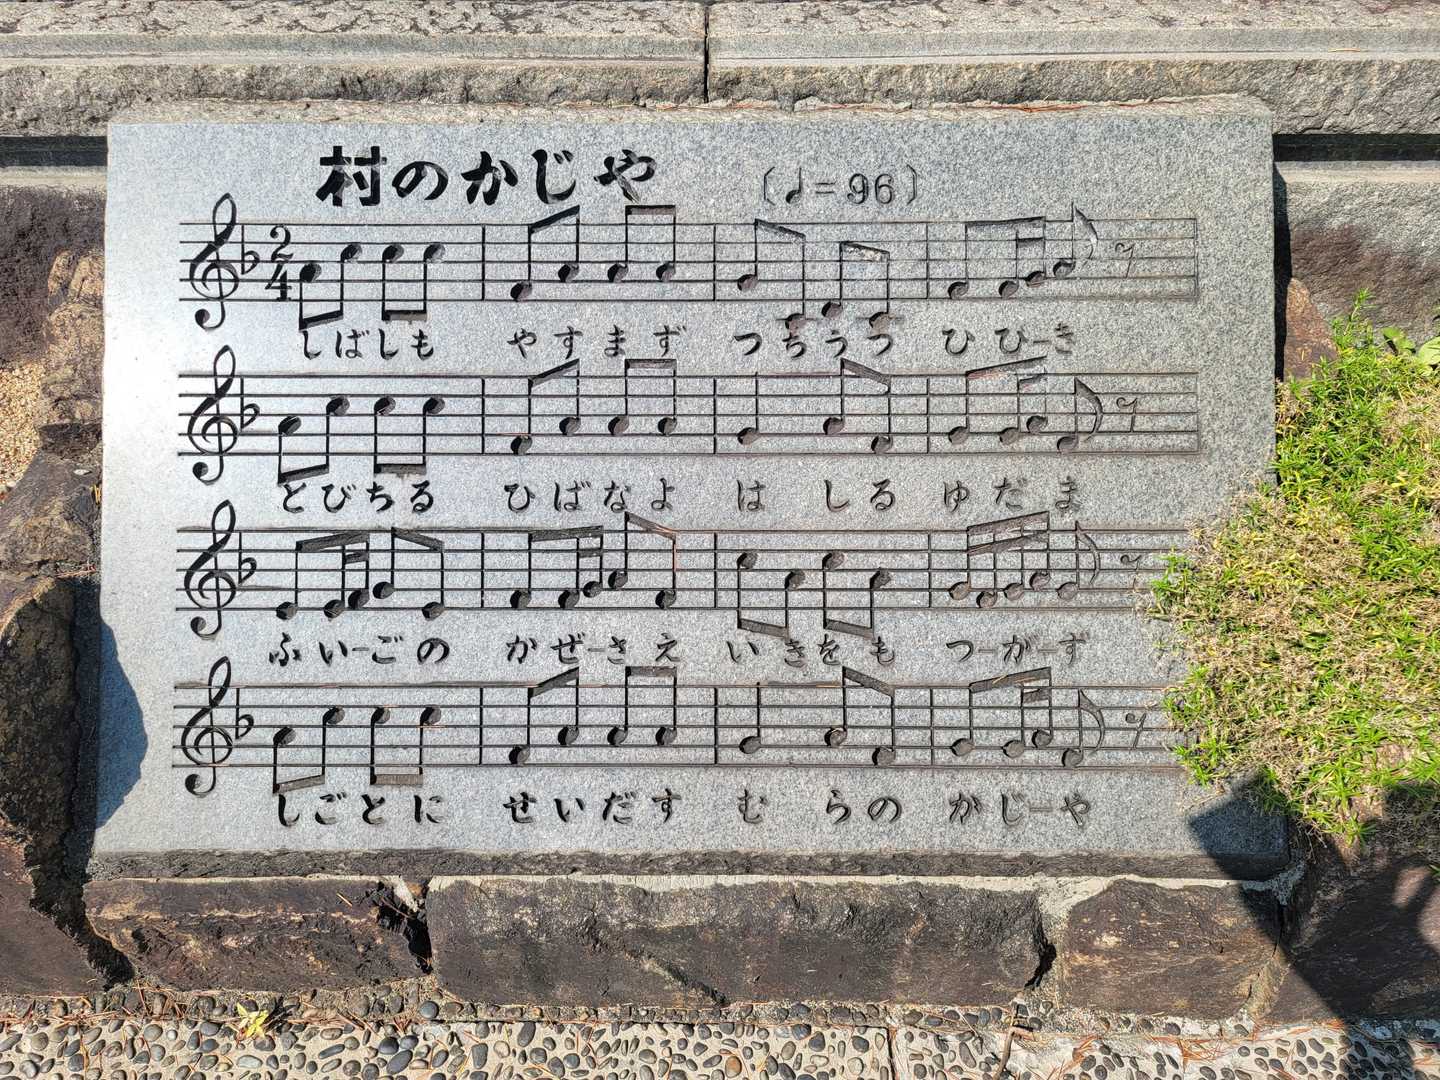 村のかじや 〔♩=96〕
2
4
しばしも やすまず つちうつ ひひーき
とびちる ひばなよ は しる ゆだま
ふいーごの かぜーさえ いきをも つーがーず
しごとに せいだす む らの かじーや